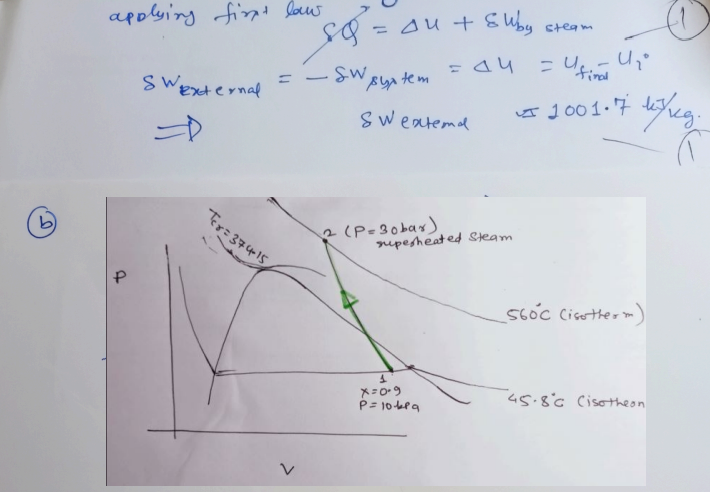 applying first law
δQ = ΔU + δW by steam
①
δW External = - δW system = ΔU = U final - Ui
⇒ δW external = 1001.7 kJ/kg.
①
ⓑ
Tcr = 374.15
2 (P=30bar)
superheated Steam
P
560°C (isotherm)
1
x=0.9
P=10 kPa
45.8°C (isotheon
V